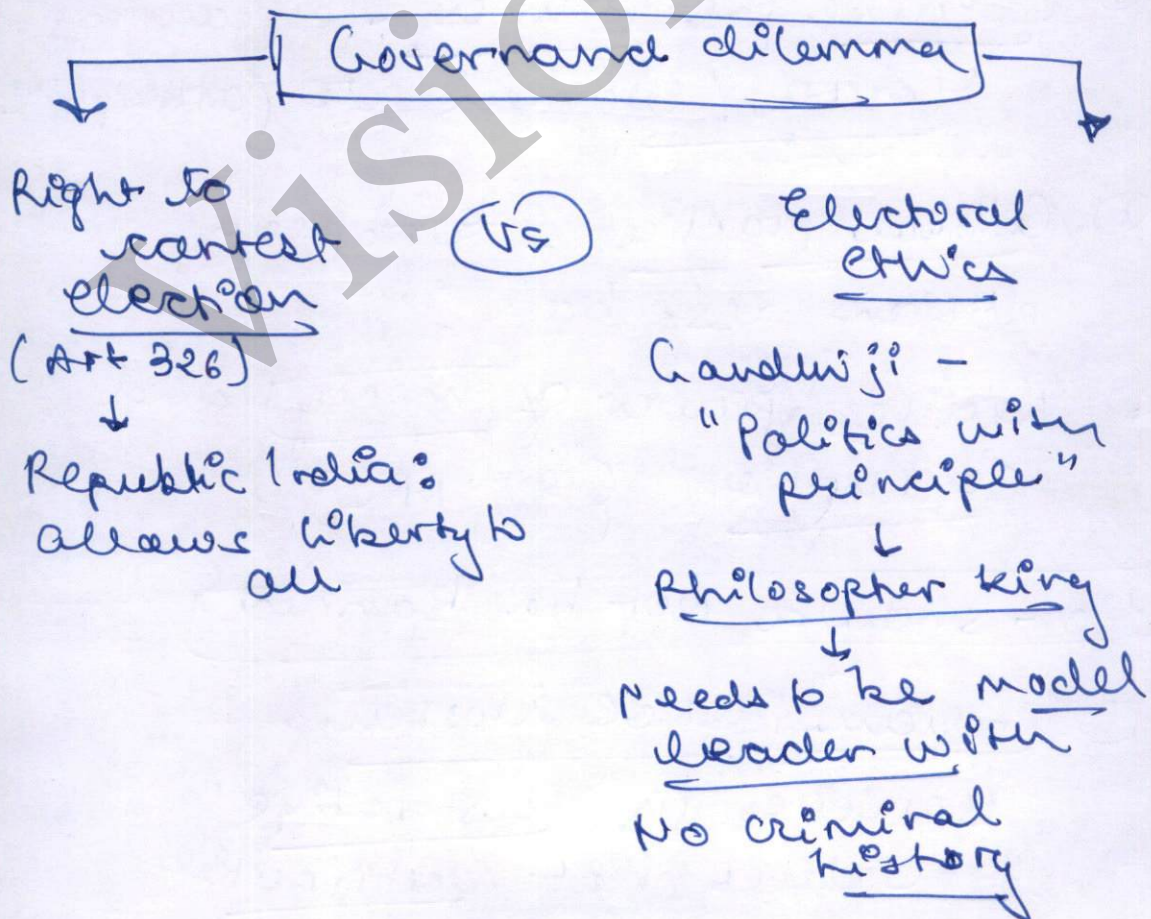 Governand dilemma
Right to
contest
election
(Art 326)
↓
Republic India:
allows liberty to
all
Vs
Electoral
ethics
Gandhiji -
"Politics with
principle"
↓
Philosopher king
↓
Needs to be model
leader with
No criminal
history
Vision